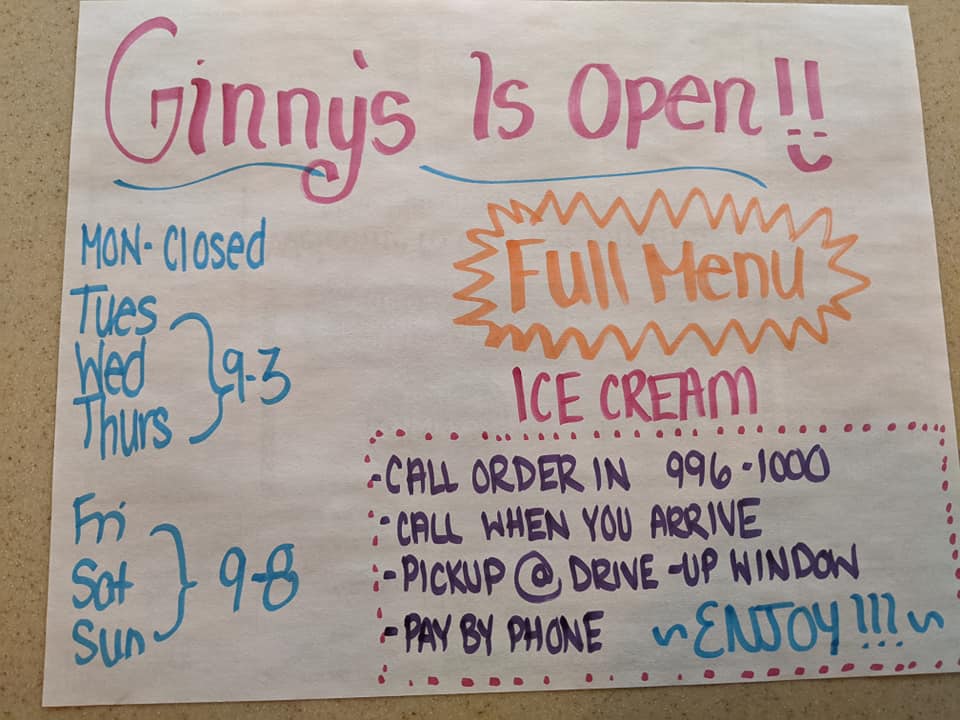 Ginny's Is Open!!
MON- Closed
Tues
Wed
Thurs
9-3
Fri
Sat
Sun
9-8
Full Menu
ICE CREAM
-CALL ORDER IN 996-1000
-CALL WHEN YOU ARRIVE
-PICKUP @ DRIVE-UP WINDOW
-PAY BY PHONE
~ENJOY!!!~